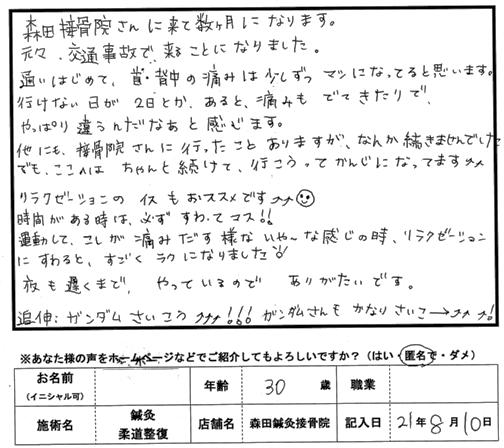 森田接骨院さんに来て数ヶ月になります。
元々、交通事故で、来ることになりました。
通いはじめて、首・背中の痛みは少しずつ マシになってると思います。
行けない日が 2日とか、あると、痛みも でてきたりで、
やっぱり違うんだなぁと感じます。
他にも、接骨院さんに行ったこと ありますが、なんか続きませんでした
でも、ここへは ちゃんと続けて、行こうって かんじになってます
リラクゼーションの イスもおススメです
時間がある時は、必ず すわってマス!!
運動して、こしが痛みだす様ないや〜な感じの時、リラクゼーション
にすわると、すごく ラクになりました
夜も遅くまで、やっているので ありがたいです。
追伸:ガンダム さいこう !!! ガンダムさんも かなりさいこー !
※あなた様の声をホームページなどでご紹介してもよろしいですか?(はい・匿名で・ダメ)
お名前 年齢 30 歳 職業
(イニシャル可)
施術名 鍼灸 柔道整復 店舗名 森田鍼灸接骨院 記入日 21年8月10日